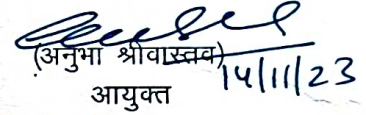 (अनुभा श्रीवास्तव)
14/11/23
आयुक्त